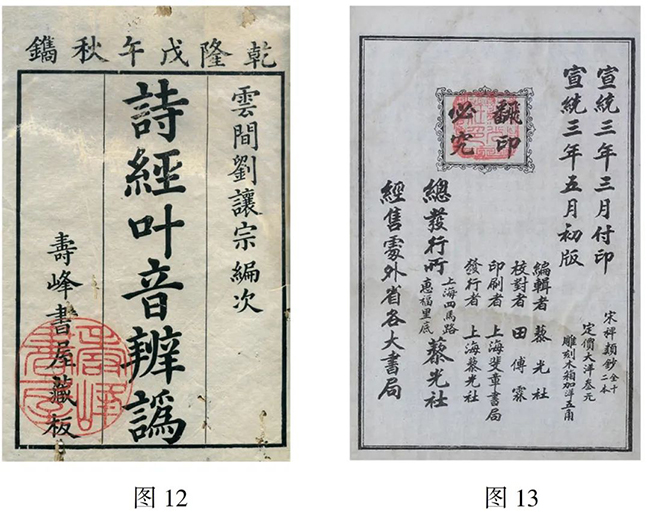 乾隆戊午秋鐫
雲間劉讓宗編次
詩經叶音辨譌
壽峰書屋藏板
图 12
宣統三年三月付印
宣統三年五月初版
翻印
必究
宋稗類鈔 全十二本
定價大洋叁元
雕刻木箱加洋五角
編輯者 藜光社
校對者 田傅霖
印刷者 上海斐章書局
發行者 上海藜光社
總發行所 上海四馬路惠福里底 藜光社
經售處外省各大書局
图 13